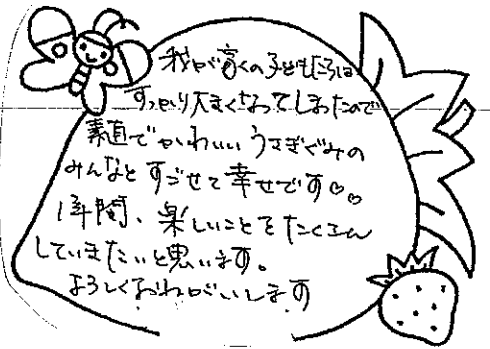 我が家の子どもたちは
すっかり大きくなってしまったので
素直でかわいい うさぎぐみの
みんなと すごせて 幸せです♡♡
1年間、楽しいことをたくさん
していきたいと思います。
よろしくおねがいします